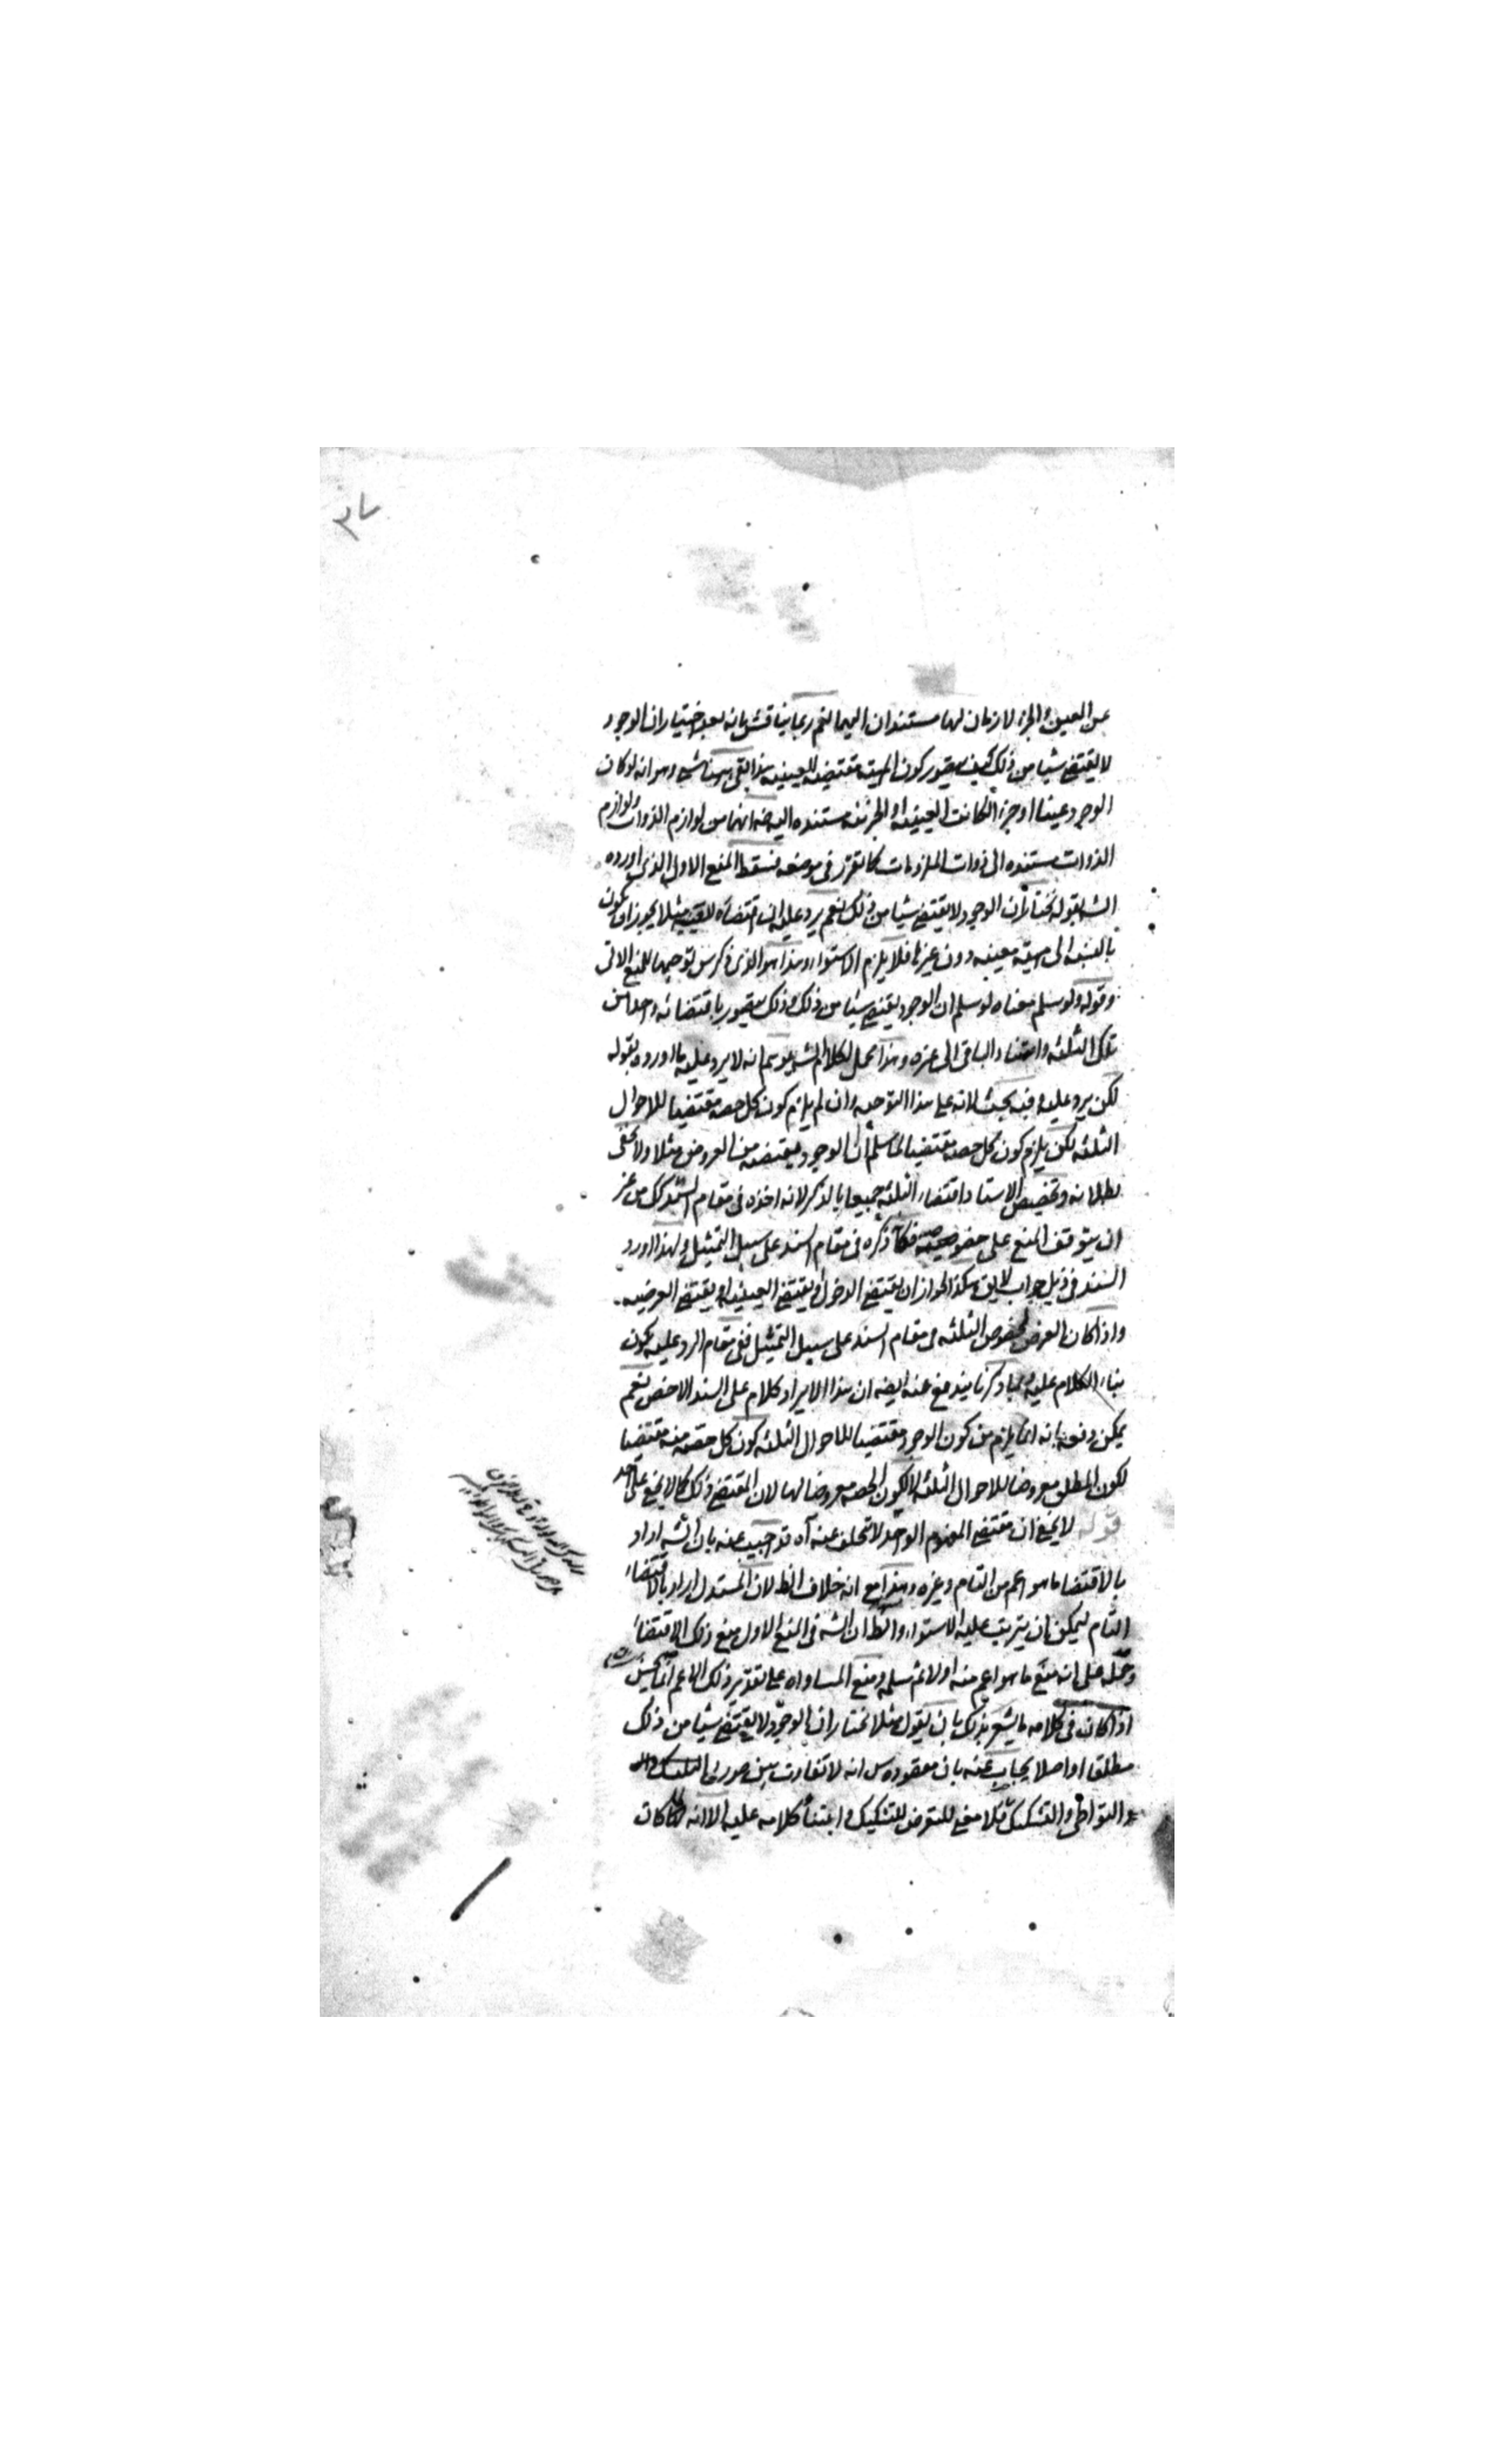 ٣٧
عن العين والجزء لازمان لهما مستندان اليهما نعم ربما يناقش بانه بعد اختيار ان الوجود
لا يقتضى شيئا من ذلك كيف يتصور كون الماهية مقتضية للعينية هذا بقى ههنا شىء وهو انه لو كان
الوجود عينا او جزءا لكانت العينية او الجزئية مستنده اليه فانهما من لوازم الذوات ولوازم
الذوات مستنده الى ذوات الملزومات كما تقرر فى موضعه فسقط المنع الاول الذى اورده
الشه بقوله نختار ان الوجود لا يقتضى شيئا من ذلك نعم يرد عليه ان اقتضاه للعينية مثلا يجوز ان يكون
بالنسبه الى مهية معينه دون غيرها فلا يلزم الاستواء وهذا هو الذى ذكر من توجيهها للمنع الاتى
وقوله ولو سلم معناه لو سلم ان الوجود يقتضى شيئا من ذلك وذلك يتصور باقتضائه واحدا من
تلك الثلثه واستناد الباقى الى غيره وهذا محمل لكلام الشه يوهم انه لا يرد عليه ما اورده بقوله
لكن يرد عليه وفيه بحث لانه على هذا التوجيه وان لم يلزم كون كل حصه مقتضيا للاحوال
الثلثه لكن يلزم كون كل حصه مقتضيا لما سلم ان الوجود يقتضيه من العروض مثلا ولا يخفى
بطلانه وتخصيص الاستاد اقتضاء الثلثه جميعا بالذكر لانه اخذه فى مقام السند كذلك من غير
ان يتوقف المنع على خصوصيته فكانه ذكره فى مقام السند على سبيل التمثيل ولهذا اورد
السند فى ذيل جواب لايق هكذا لجواز ان يقتضى الدخول او يقتضى العينية او يقتضى العرضيه
واذا كان العرض لخصوص الثلثه فى مقام السند على سبيل التمثيل ففى مقام الرد عليه يكون
بناء الكلام عليه وبما ذكرنا يندفع عنه ايضه ان هذا الايراد كلام على السند الاخص نعم
يمكن دفعه بانه انما يلزم من كون الوجود مقتضيا للاحوال الثلثه كون كل حصه منه مقتضيا
لكون المطلق معروضا للاحوال الثلثه لا لكون الحصه معروضا لها لان المقتضى ذلك كما لا يخفى على احد
قوله لا يخفى ان مقتضى المفهوم الواحد لا تخلف عنه آه قد اجيب عنه بان الشه اراد
بالاقتضا ما هو اعم من التام وغيره وهذا مع انه خلاف الظ لان المستدل اراد بالاقتضاء
التام ليمكن ان يترتب عليه الاستواء والظ ان الشه فى المنع الاول منع ذلك الاقتضاء
وحمله على انه منع ما هو اعم منه اولا ثم سلمه ومنع المساواه على تقدير ذلك الاعم انما يحسن
اذا كان فى كلامه ما يشعر بذلك بان يقول مثلا نختار ان الوجود لا يقتضى شيئا من ذلك
مطلقا او اصلا يجاب عنه بان مقصوده انه لا تفاوت بين صورة
والتواطى والتشكيك فلا معنى للتعرض للتشكيك وابتناء كلامه عليه الا انه لما كان